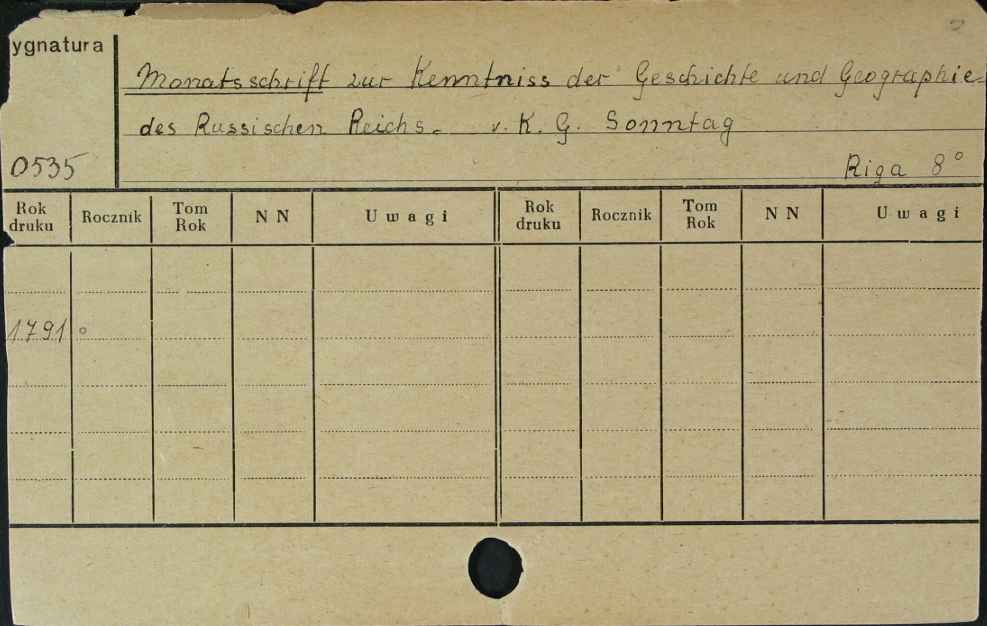 ygnatura
Monatsschrift zur Kenntniss der Geschichte und Geographie
des Russischen Reichs. v. K. G. Sonntag
0535
Riga 8°
Rok druku Rocznik Tom Rok NN Uwagi Rok druku Rocznik Tom Rok NN Uwagi
1791 °